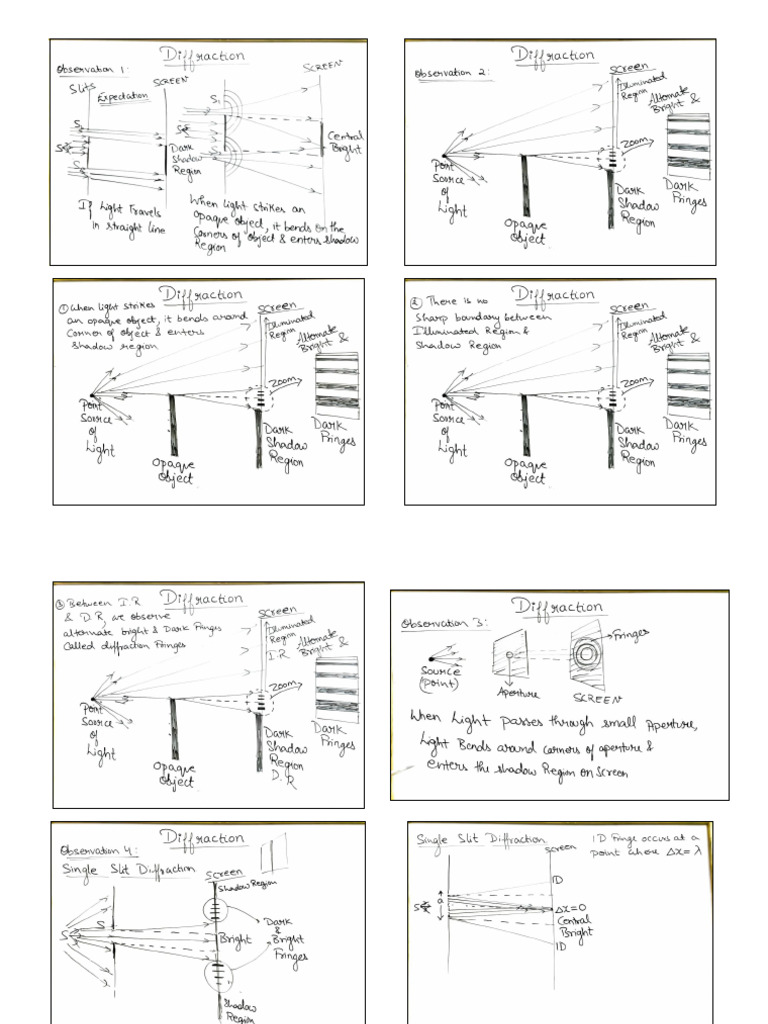 Diffraction
Observation 1:
Slits
SCREEN
SCREEN
Expectation
S1
S1
S
S
S2
Dark
Shadow
Region
Central
Bright
If Light Travels
in straight line
When light strikes an
opaque object, it bends on the
corners of object & enters shadow
Region
Diffraction
Observation 2:
Screen
Illuminated
Region
Alternate
Bright &
Zoom
Point
Source
of
Light
Opaque
Object
Dark
Shadow
Region
Dark
Fringes
Diffraction
① When light strikes
an opaque object, it bends around
corner of object & enters
shadow region
Screen
Illuminated
Region
Alternate
Bright &
Zoom
Point
Source
of
Light
Opaque
Object
Dark
Shadow
Region
Dark
Fringes
Diffraction
② There is no
Sharp boundary between
Illuminated Region &
Shadow Region
Screen
Illuminated
Region
Alternate
Bright &
Zoom
Point
Source
of
Light
Opaque
Object
Dark
Shadow
Region
Dark
Fringes
Diffraction
③ Between I.R
& D.R, we observe
alternate bright & Dark Fringes
Called diffraction Fringes
Screen
Illuminated
Region
I.R
Alternate
Bright &
Zoom
Point
Source
of
Light
Opaque
Object
Dark
Shadow
Region
D.R
Dark
Fringes
Diffraction
Observation 3:
Source
(point)
Aperture
SCREEN
Fringes
When Light passes through small Aperture,
Light Bends around corners of aperture &
enters the shadow Region on Screen
Diffraction
Observation 4:
Single Slit Diffraction
Screen
Shadow Region
S
S
Bright
Dark
&
Bright
Fringes
Shadow
Region
Single Slit Diffraction
Screen
1D Fringe occurs at a
point where Δx=λ
1D
S
a
Δx=0
Central
Bright
1D